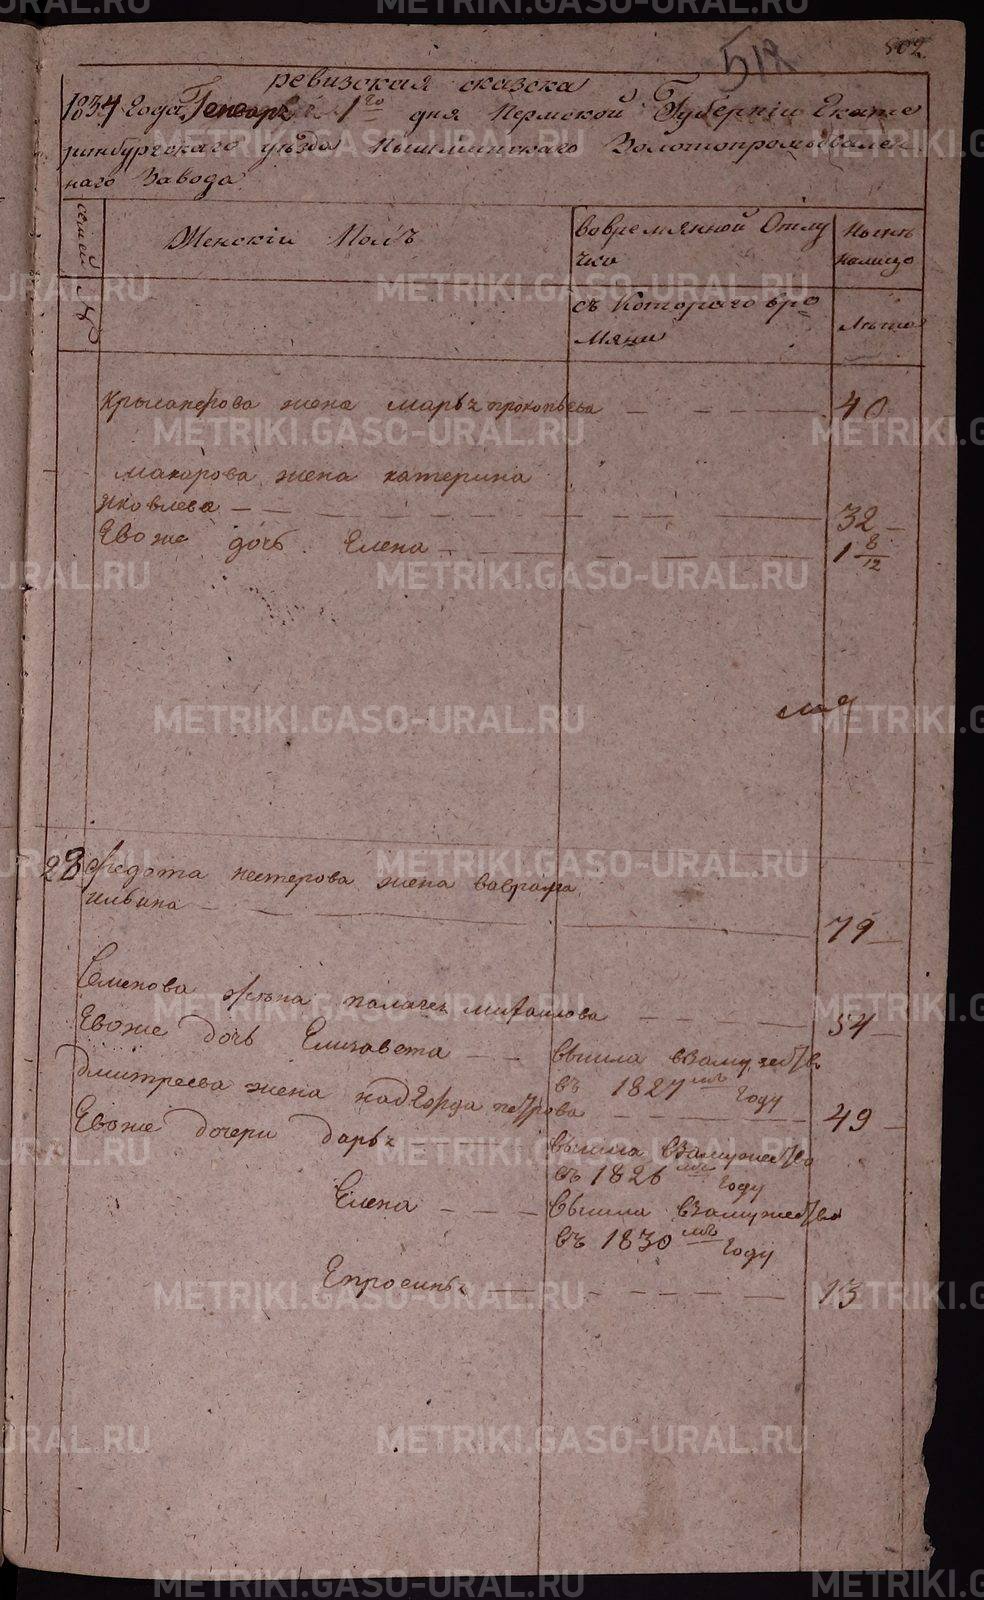 512
502
ревизская сказска
1834 года Генваря 1го дня Пермской Губернiи Екате
ринбургскаго уѣзда Пышминскаго Золотопромывален
наго Завода
семей
Женскiй Полъ
Вовремянной Отлу
чки
Нынѣ
налицо
№
съ Котораго вре
мяни
Лѣта
жена марья прокопьева — — — 40
макарова жена катерина
яковлева — — — 32
Евоже дочь Елена — — — 1 8/12
28 Федота нестерова жена
ильина — — — 79
Семенова жена палагея михаилова — — — 54
Евоже дочь Елизавета — — вышла взамужество
въ 1827мъ году
дмитреева жена петрова — — — 49
Евоже дочери дарья вышла взамужество
въ 1826мъ году
Елена — — — вышла взамужество
въ 1830мъ году
Епросинья — — — 13
METRIKI.GASO-URAL.RU